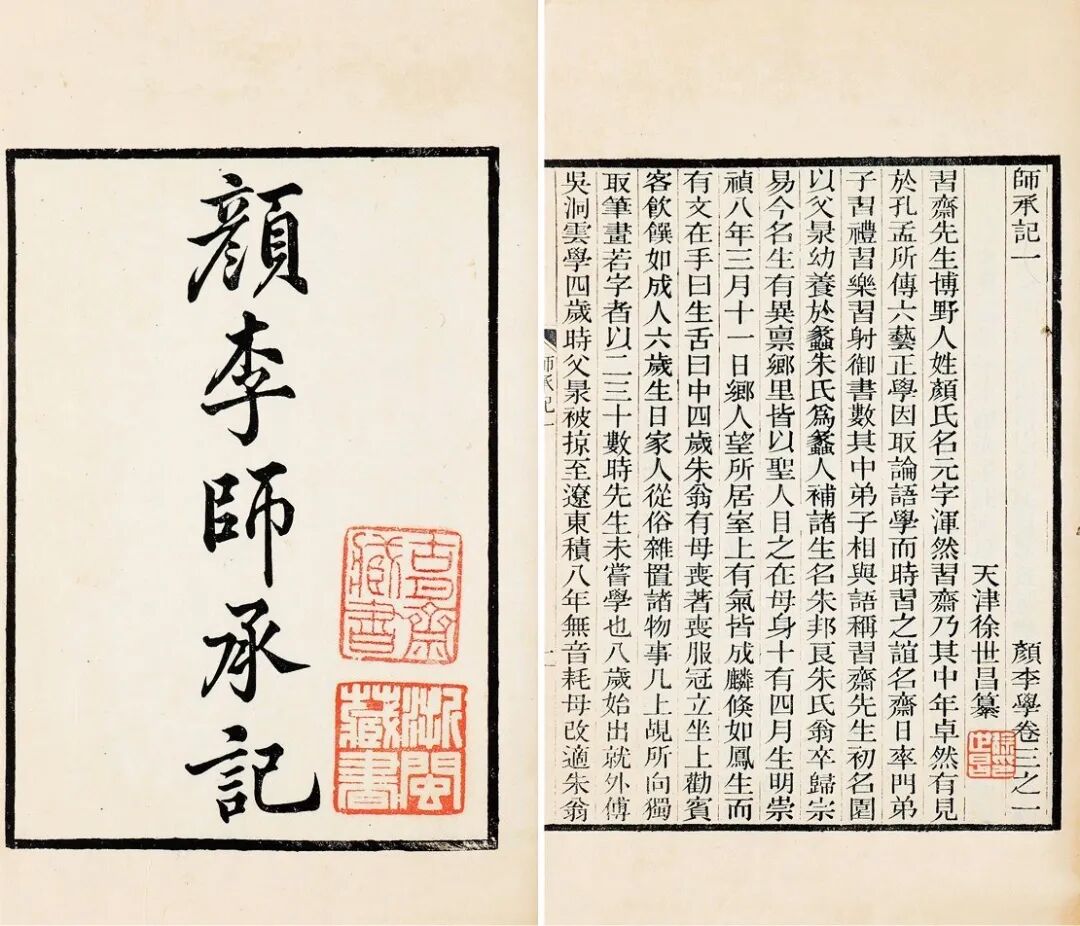 顏李師承記
師承記一
顏李學卷三之一
天津徐世昌纂
習齋先生博野人姓顏氏名元字渾然習齋乃其中年卓然有見
於孔孟所傳六藝正學因取論語學而時習之誼名齋日率門弟
子習禮習樂習射御書數其中弟子相與語稱習齋先生初名園
以父㫤幼養於蠡朱氏爲蠡人補諸生名朱邦良朱氏翁卒歸宗
易今名生有異禀鄉里皆以聖人目之在母身十有四月生明崇
禎八年三月十一日鄉人望所居室上有氣皆成麟倐如鳳生而
有文在手曰生舌曰中四歲朱翁有母喪著喪服冠立坐上勸賓
客飮饌如成人六歲生日家人從俗雜置諸物事几上覘所向獨
取筆畫若字者以二三十數時先生未嘗學也八歲始出就外傅
吳洞雲學四歲時父㫤被掠至遼東積八年無音耗母改適朱翁
師承記一
浙閩藏書